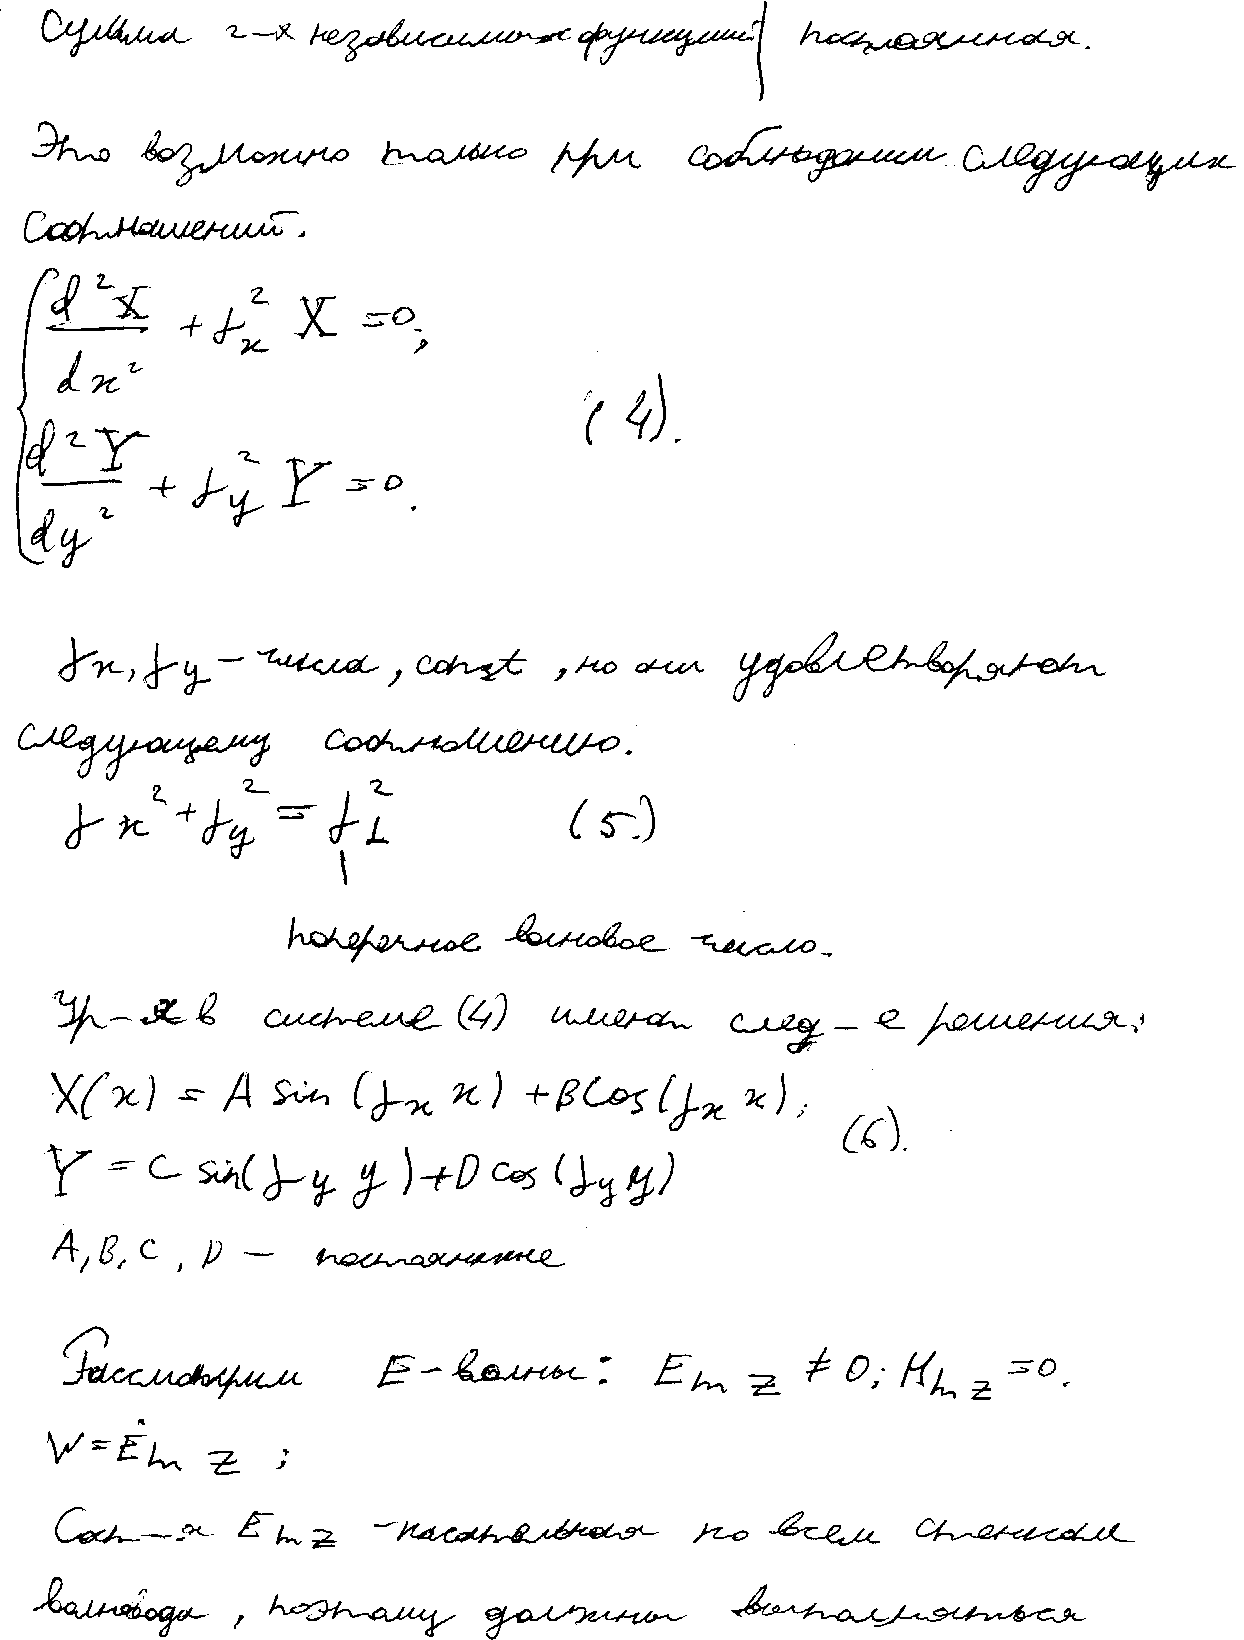 Сумма 2-х независимых функций | постоянная.
Это возможно только при соблюдении следующих
соотношений.
d²X/dx² + γx² X = 0;
(4).
d²Y/dy² + γy² Y = 0.
γx, γy – числа, const, но они удовлетворяют
следующему соотношению.
γx² + γy² = γ⊥² (5.)
поперечное волновое число.
Ур-я в системе (4) имеют след-е решения:
X(x) = A sin(γx x) + B cos(γx x);
(6).
Y = C sin(γy y) + D cos(γy y)
A, B, C, D – постоянные
Рассмотрим E-волны: Emz ≠ 0; Hmz = 0.
W = Ėmz;
Сост-я Emz – касательная ко всем стенкам
волновода, поэтому должны выполняться